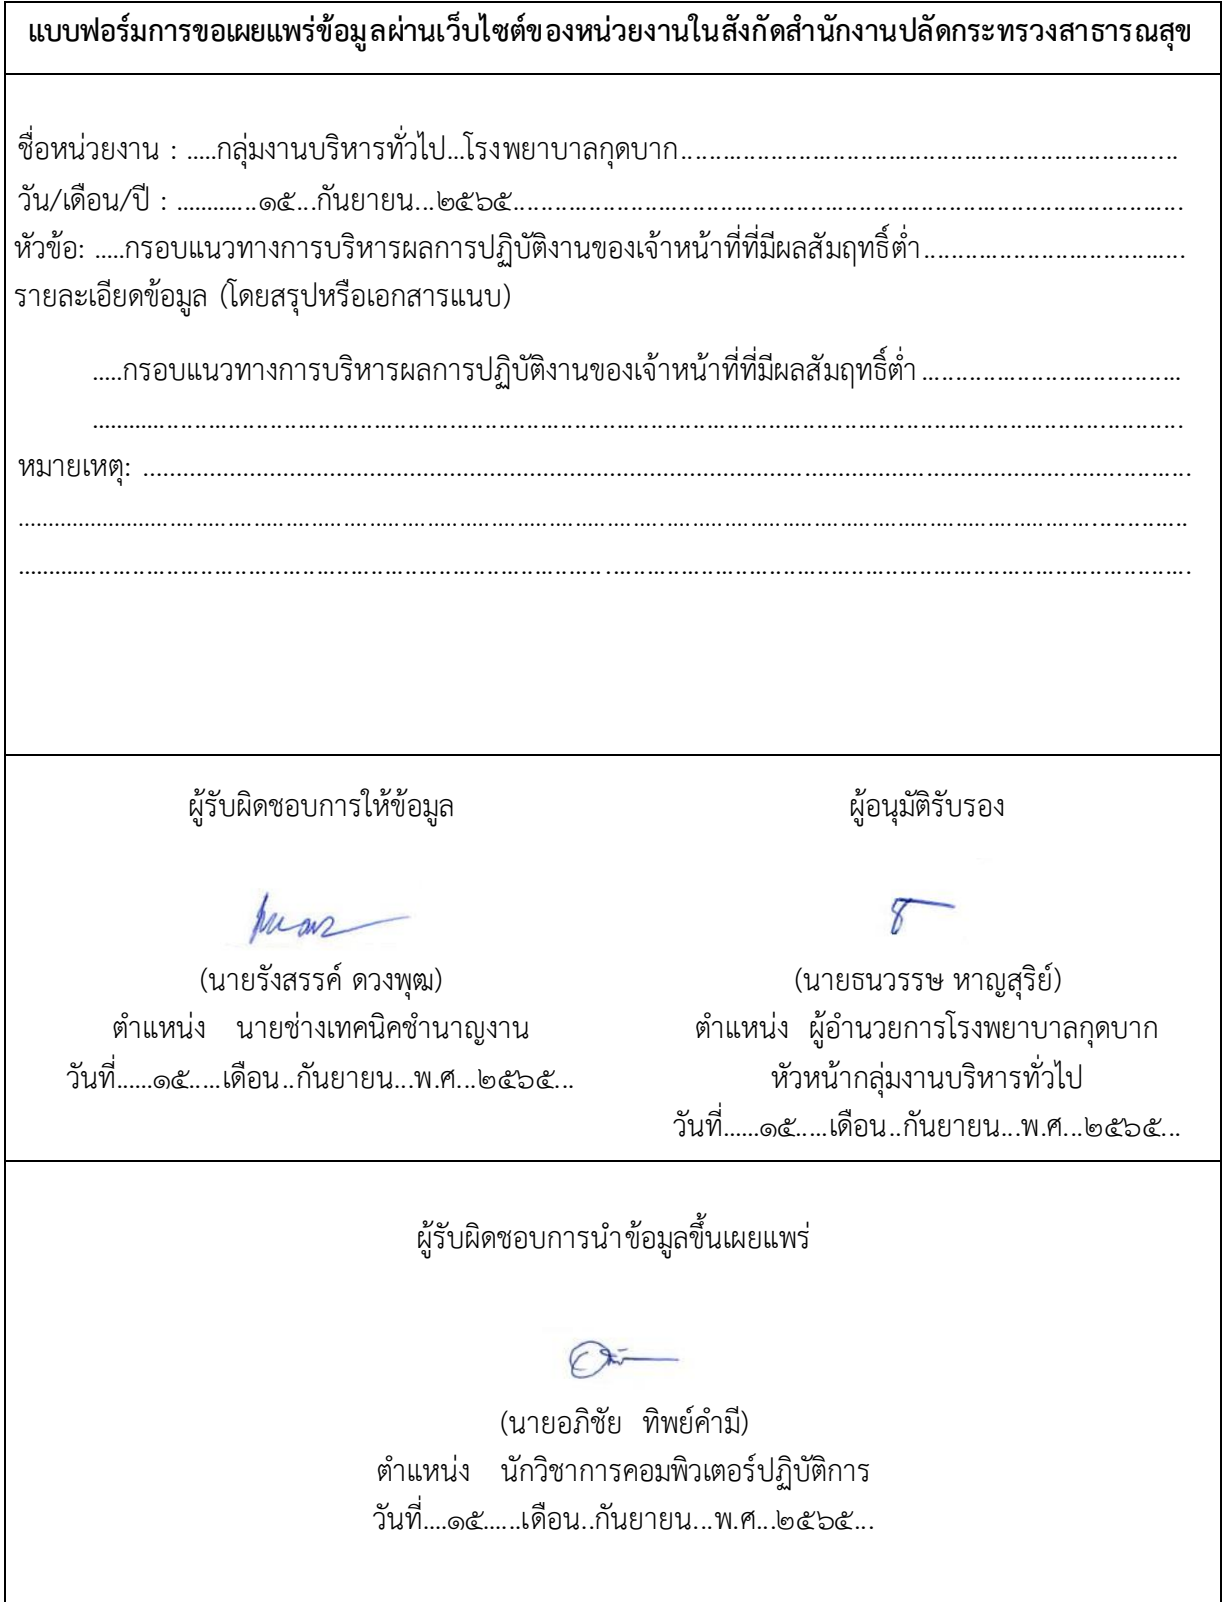 แบบฟอร์มการขอเผยแพร่ข้อมูลผ่านเว็บไซต์ของหน่วยงานในสังกัดสำนักงานปลัดกระทรวงสาธารณสุข
ชื่อหน่วยงาน : .....กลุ่มงานบริหารทั่วไป...โรงพยาบาลกุดบาก..................................................................
วัน/เดือน/ปี : .............๑๕...กันยายน...๒๕๖๕..........................................................................................
หัวข้อ: .....กรอบแนวทางการบริหารผลการปฏิบัติงานของเจ้าหน้าที่ที่มีผลสัมฤทธิ์ต่ำ...................................
รายละเอียดข้อมูล (โดยสรุปหรือเอกสารแนบ)
.....กรอบแนวทางการบริหารผลการปฏิบัติงานของเจ้าหน้าที่ที่มีผลสัมฤทธิ์ต่ำ...................................
..............................................................................................................................................
หมายเหตุ: ........................................................................................................................................
........................................................................................................................................................
........................................................................................................................................................
ผู้รับผิดชอบการให้ข้อมูล
(นายรังสรรค์ ดวงพุฒ)
ตำแหน่ง นายช่างเทคนิคชำนาญงาน
วันที่......๑๕.....เดือน..กันยายน...พ.ศ...๒๕๖๕...
ผู้อนุมัติรับรอง
(นายธนวรรษ หาญสุริย์)
ตำแหน่ง ผู้อำนวยการโรงพยาบาลกุดบาก
หัวหน้ากลุ่มงานบริหารทั่วไป
วันที่......๑๕.....เดือน..กันยายน...พ.ศ...๒๕๖๕...
ผู้รับผิดชอบการนำข้อมูลขึ้นเผยแพร่
(นายอภิชัย ทิพย์คำมี)
ตำแหน่ง นักวิชาการคอมพิวเตอร์ปฏิบัติการ
วันที่....๑๕......เดือน..กันยายน...พ.ศ...๒๕๖๕...